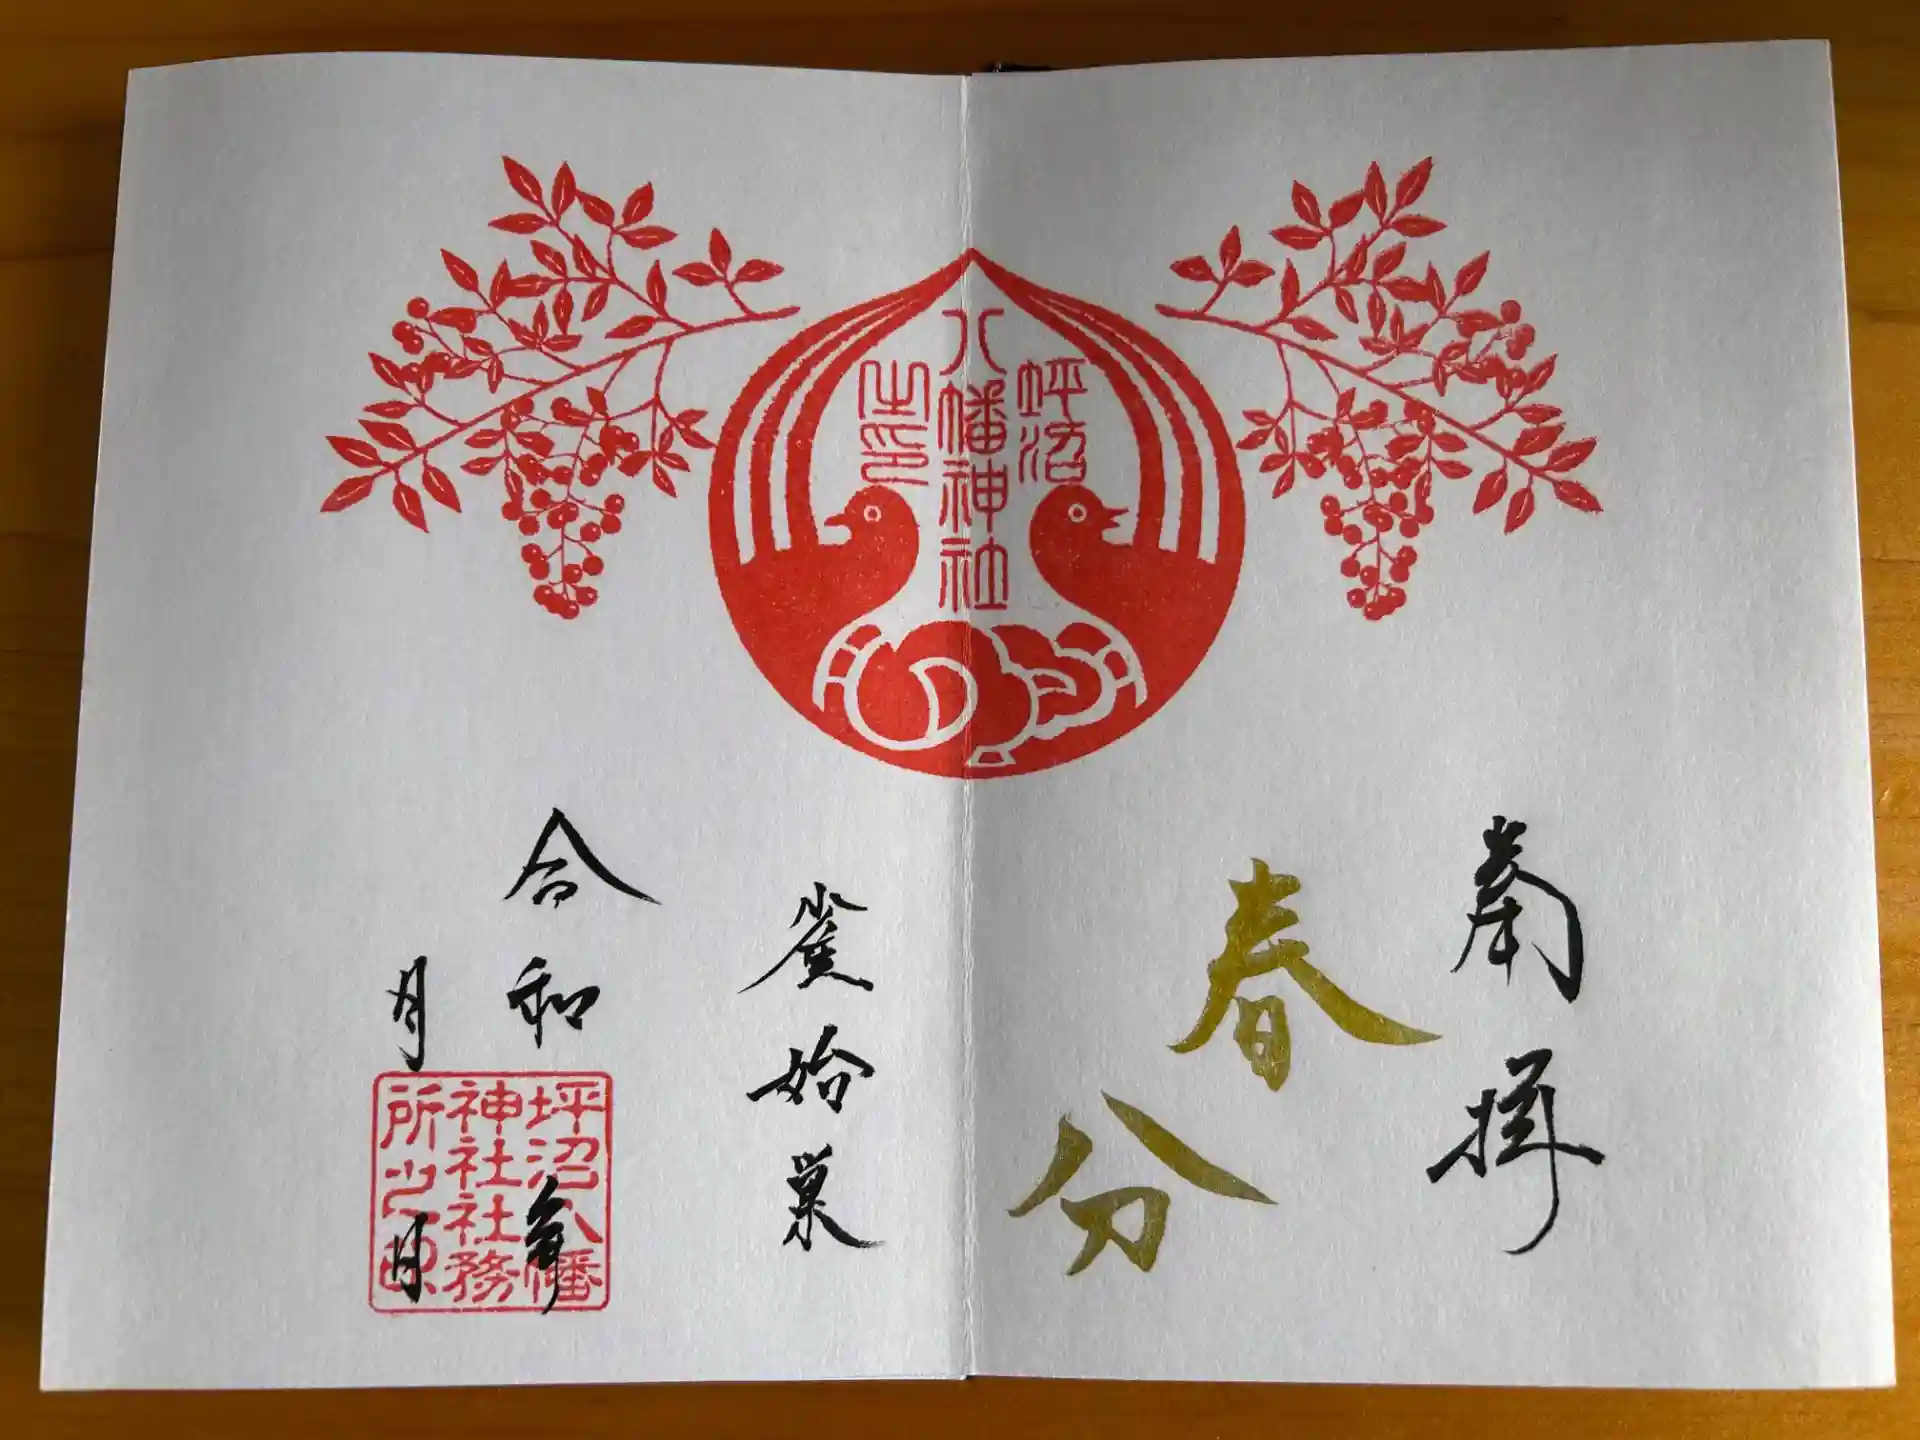 奉拝
春分
坪沼
八幡神社
之印
雀始巣
令和 年
月 日
坪沼八幡
神社社務
所之印